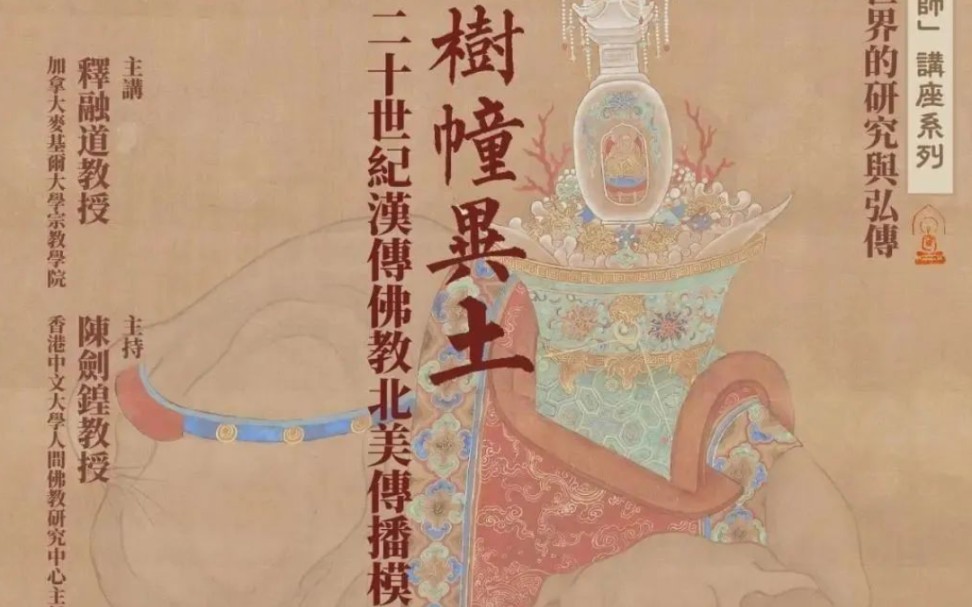 師」講座系列
世界的研究與弘傳
樹幢異土
二十世紀漢傳佛教北美傳播模
主講
釋融道教授
加拿大麥基爾大學宗教學院
主持
陳劍鍠教授
香港中文大學人間佛教研究中心主